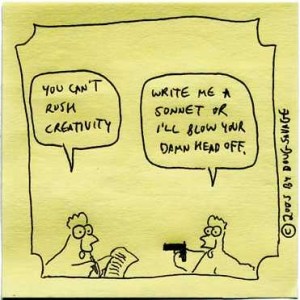 YOU CAN'T
RUSH
CREATIVITY
WRITE ME A
SONNET OR
I'LL BLOW YOUR
DAMN HEAD OFF.
© 2005 BY DOUG SAVAGE